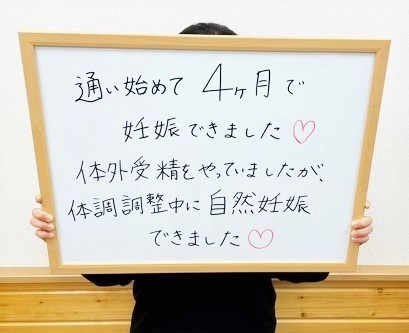 通い始めて 4ヶ月で
妊娠できました♡
体外受精をやっていましたが、
体調調整中に自然妊娠
できました♡